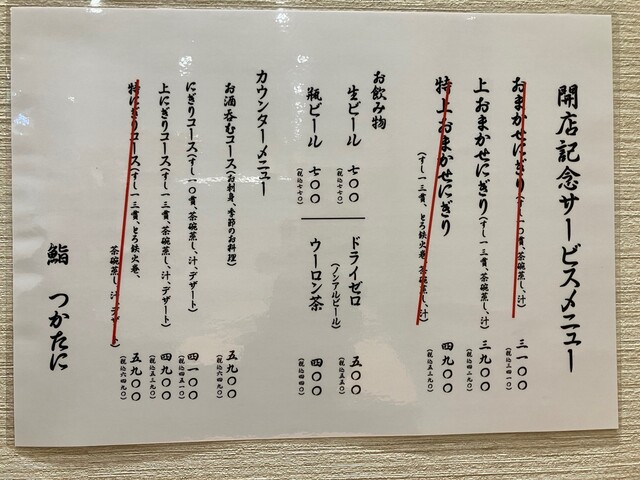 開店記念サービスメニュー
おまかせにぎり(すし一〇貫、茶碗蒸し、汁) 三一〇〇
(税込三四一〇)
上おまかせにぎり(すし一三貫、茶碗蒸し、汁) 三九〇〇
(税込四二九〇)
特上おまかせにぎり
(すし一三貫、とろ鉄火巻、茶碗蒸し、汁) 四九〇〇
(税込五三九〇)
お飲み物
生ビール 七〇〇
(税込七七〇)
瓶ビール 七〇〇
(税込七七〇)
ドライゼロ
(ノンアルビール) 五〇〇
(税込五五〇)
ウーロン茶 四〇〇
(税込四四〇)
カウンターメニュー
お酒呑むコース(お刺身、季節のお料理) 五九〇〇
(税込六四九〇)
にぎりコース(すし一〇貫、茶碗蒸し、汁、デザート) 四一〇〇
(税込四五一〇)
上にぎりコース(すし一三貫、茶碗蒸し、汁、デザート) 四九〇〇
(税込五三九〇)
特にぎりコース(すし一三貫、とろ鉄火巻、
茶碗蒸し、汁、デザート) 五九〇〇
(税込六四九〇)
鮨 つかたに